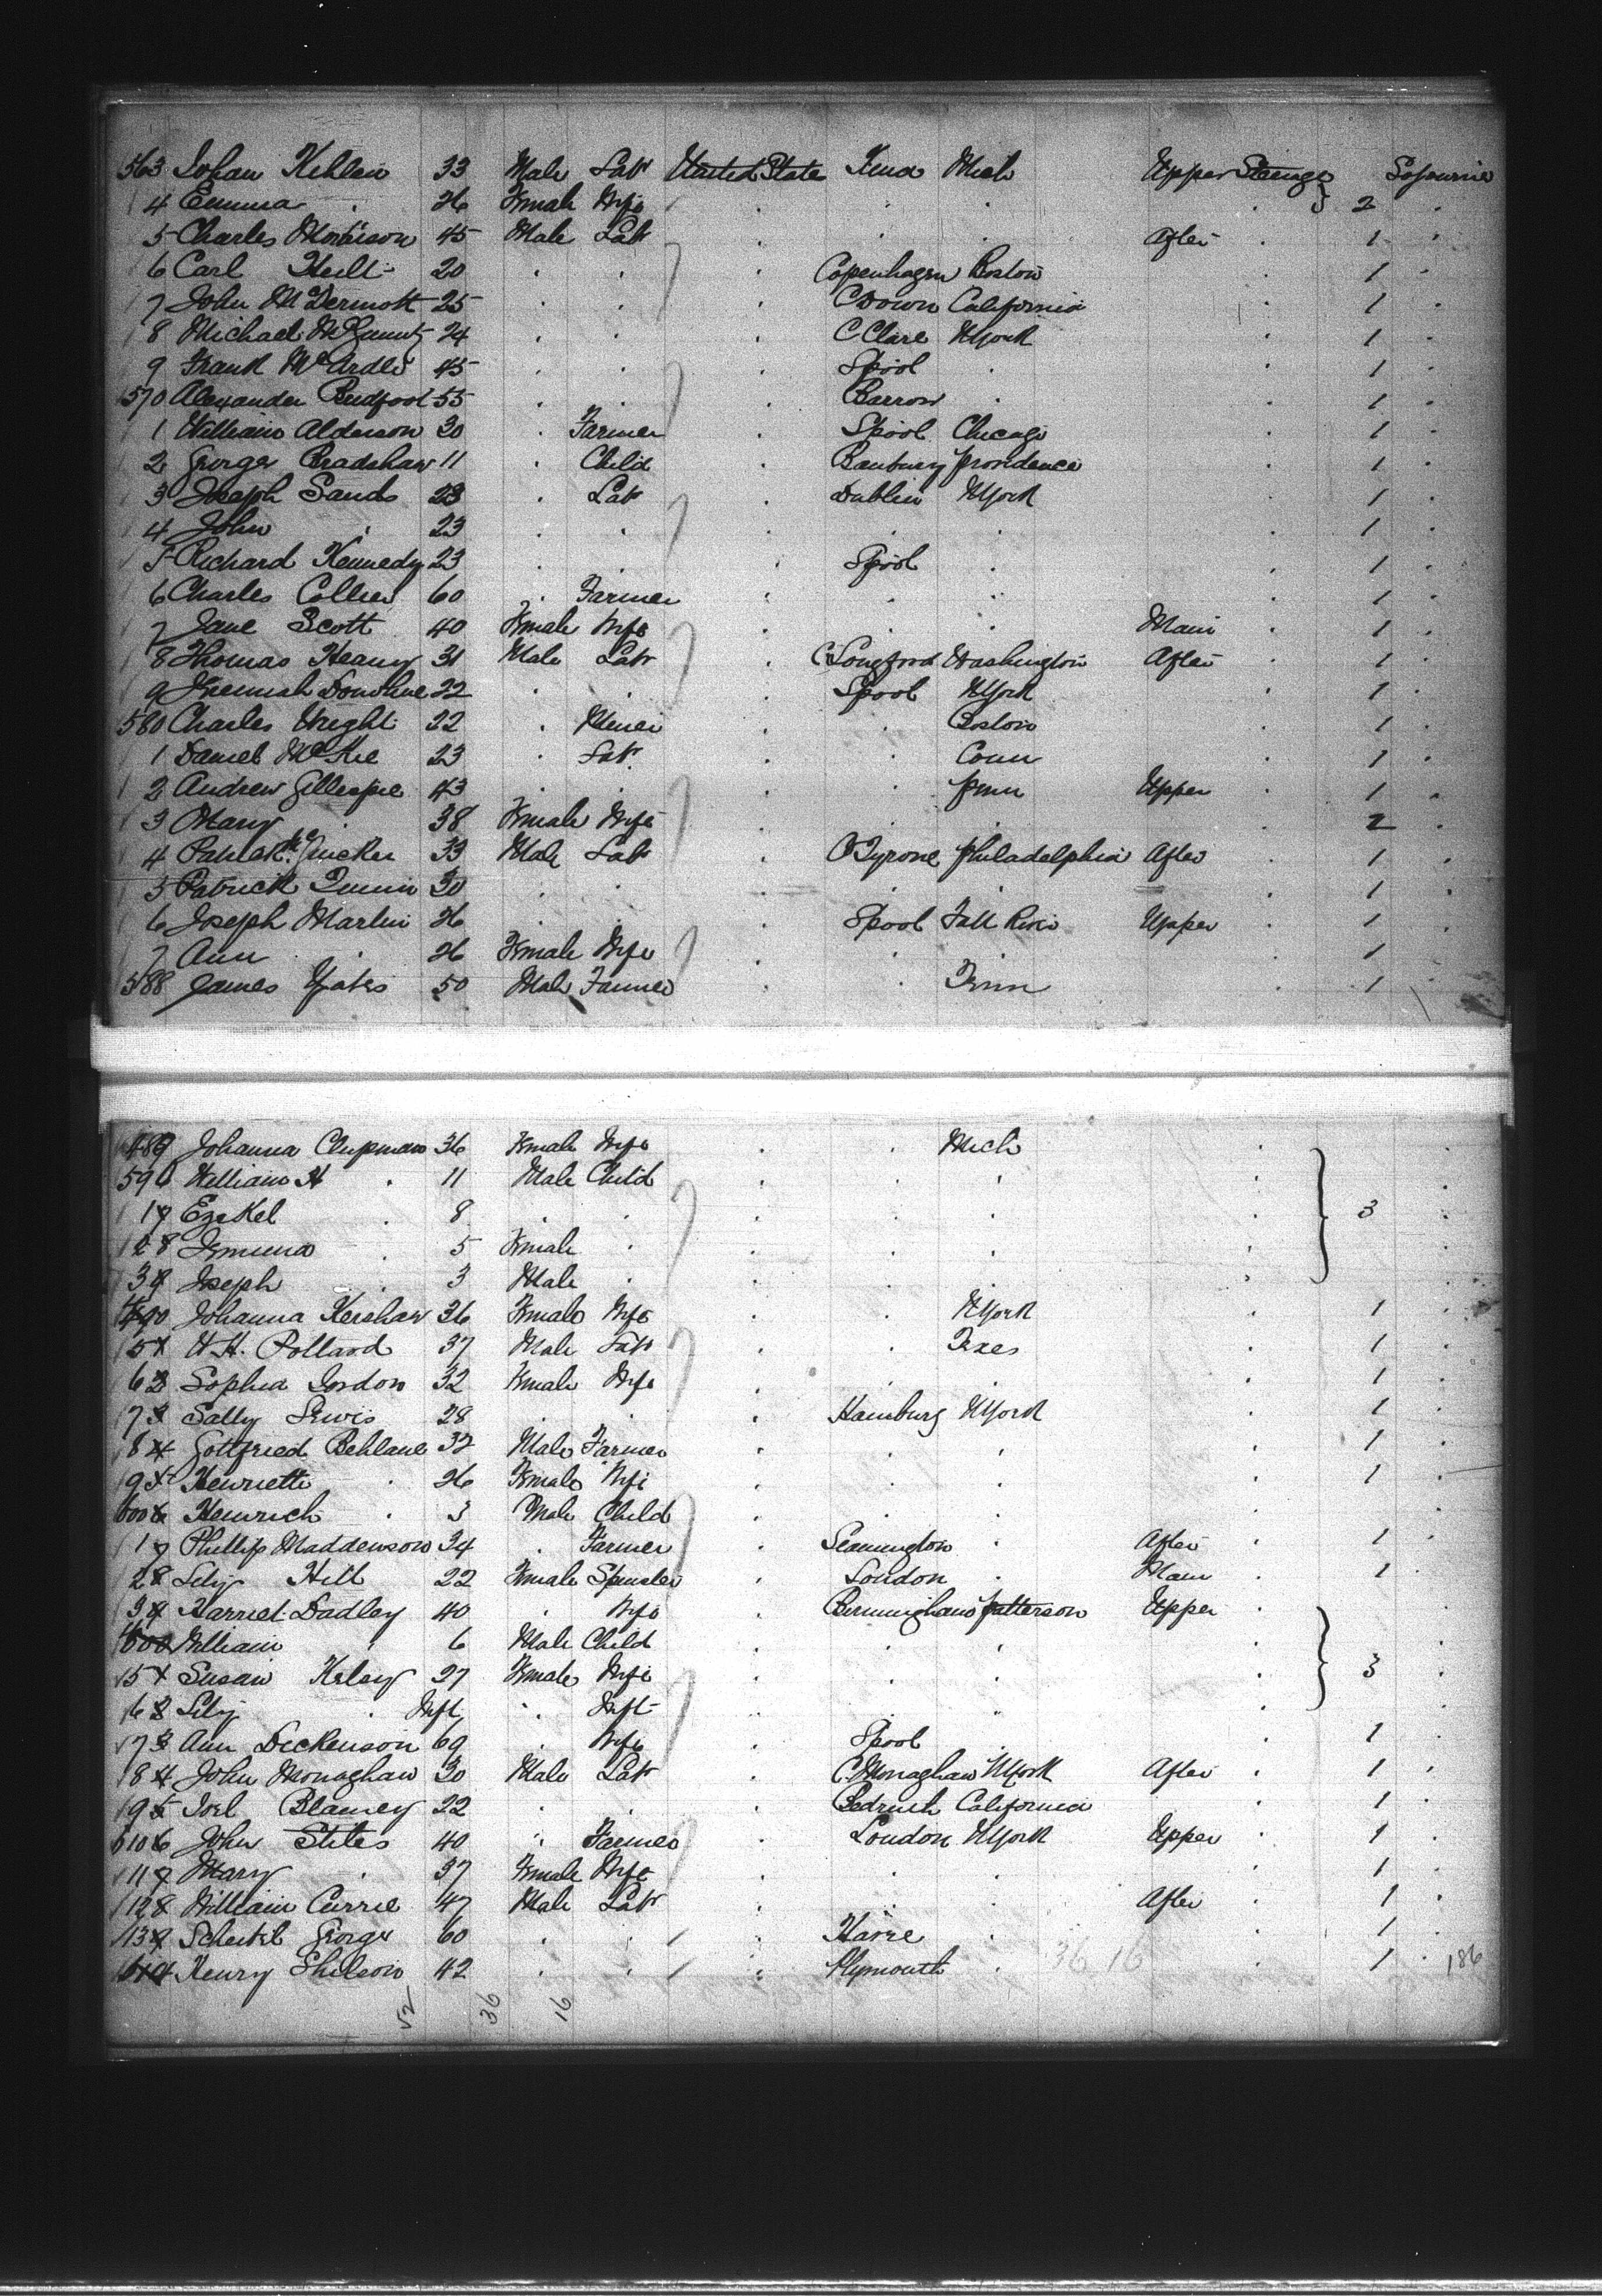 563 Johan Kehlen 33 Male Labr United States Kena Mich Upper Steerage Sojourner
4 Emma . 26 Female Wife . . . . } 2 .
5 Charles Morrison 45 Male Labr . . . After . 1 .
6 Carl Hult 20 . . . Copenhagen Boston . 1 .
7 John McDermott 25 . . . C Down California . 1 .
8 Michael 24 . . . C Clare N York . 1 .
9 Frank McArdle 45 . . . Lpool . . 1 .
570 Alexander 55 . . . Barrow . . 1 .
1 William Alderson 30 . Farmer . Lpool Chicago . 1 .
2 George Bradshaw 11 . Child . Banbury Providence . 1 .
3 Joseph Sands 23 . Labr . Dublin N York . 1 .
4 John . 23 . . . . . . 1 .
5 Richard Kennedy 23 . . . Lpool . . 1 .
6 Charles Collier 60 . Farmer . . . . 1 .
7 Jane Scott 40 Female Wife . . . Main . 1 .
8 Thomas Heany 31 Male Labr . C Longford Washington After . 1 .
9 Jeremiah Donohue 22 . . . Lpool N York . 1 .
580 Charles Wright 22 . Miner . . Boston . 1 .
1 Daniel McKee 23 . Labr . . Conn . 1 .
2 Andrew Gillespie 43 . . . . Penn Upper . 1 .
3 Mary . 38 Female Wife . . . . 2 .
4 Patrick 33 Male Labr . C Tyrone Philadelphia After . 1 .
5 Patrick Quinn 30 . . . . . . 1 .
6 Joseph Martin 26 . . . Lpool Fall River Upper . 1 .
7 Ann . 26 Female Wife . . . . 1 .
588 James Yates 50 Male Farmer . . Tenn . 1 .
489 Johanna Clupman 36 Female Wife . . Mich . .
590 William H . 11 Male Child . . . . .
1 7 Ezekel . 8 . . . . . . } 3 .
2 8 Jemima . 5 Female . . . . . .
3 9 Joseph . 3 Male . . . . . .
490 Johanna Kershaw 36 Female Wife . . N York . 1 .
5 1 W.H. Pollard 37 Male Labr . . Texes . 1 .
6 2 Sophia Gordon 32 Female Wife . . . . 1 .
7 3 Sally Lewis 28 . . . Hamburg N York . 1 .
8 4 Gottfried Behlane 32 Male Farmer . . . . 1 .
9 5 Henriette . 26 Female Wife . . . . 1 .
600 6 Heinrich . 3 Male Child . . . . .
1 7 Phillip Maddenson 34 . Farmer . Leamington . After . 1 .
2 8 Lily Hill 22 Female Spinster . London . Main . 1 .
3 9 Harriet Dadley 40 . Wife . Birmingham Patterson Upper . .
600 William . 6 Male Child . . . . .
5 1 Susan Kelsey 27 Female Wife . . . . } 3 .
6 2 Lily . Inft . Inft . . . . .
7 3 Ann Dickenson 69 . Wife . Lpool . . 1 .
8 4 John Monaghan 30 Male Labr . C. Monaghan N York After . 1 .
9 5 Joel Blamey 22 . . . Redruth California . 1 .
610 6 John Stiles 40 . Farmer . London N York Upper . 1 .
11 7 Mary . 37 Female Wife . . . . 1 .
12 8 William Currie 47 Male Labr . . . After . 1 .
13 9 George 60 . . . Havre . . 1 .
Henry 42 . . . Plymouth . 36 16 . 1 . 186
52 36 16